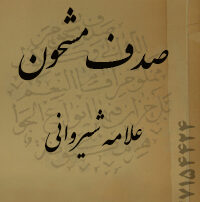 صدف مشحون
علامه شیروانی
۷۱۵۴۴۲۴